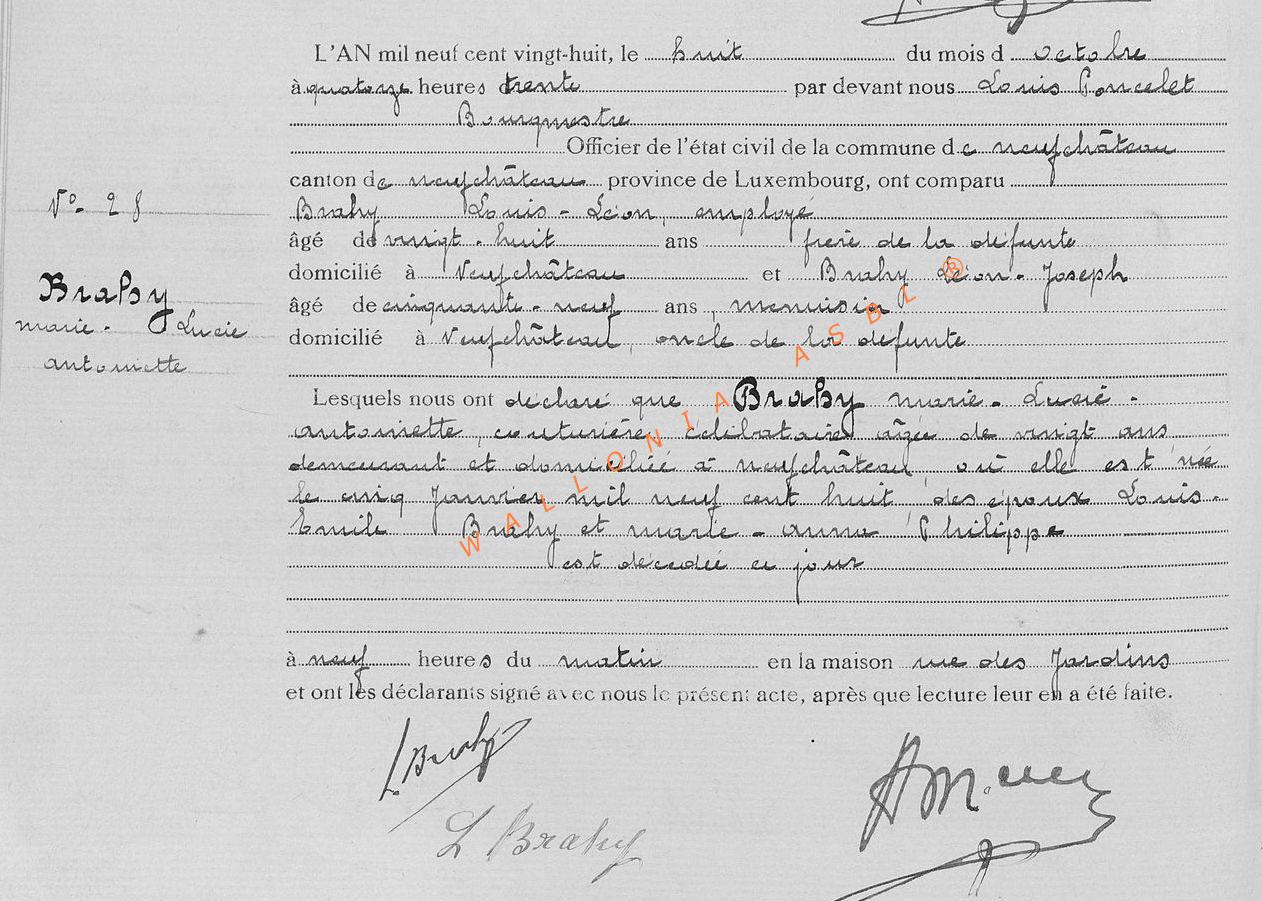 L'AN mil neuf cent vingt-huit, le huit du mois d octobre
à quatorze heures trente par devant nous Louis Poncelet
Bourgmestre
Officier de l'état civil de la commune de neufchâteau
canton de neufchâteau province de Luxembourg, ont comparu
N° 28
Brahy Louis-Léon, employé
âgé de vingt-huit ans frère de la défunte
domicilié à Neufchâteau et Brahy Léon-Joseph
Brahy
marie-Lucie
antoinette
âgé de cinquante-neuf ans, menuisier
domicilié à Neufchâteau, oncle de la défunte
Lesquels nous ont déclaré que Brahy marie-Lucie-
antoinette, couturière, célibataire âgée de vingt ans
demeurant et domiciliée à neufchâteau où elle est née
le cinq Janvier mil neuf cent huit, des époux Louis-
Emile Brahy et marie-anna Philippe
est décédée ce jour
à neuf heures du matin en la maison rue des Jardins
et ont les déclarants signé avec nous le présent acte, après que lecture leur en a été faite.
L. Brahy
L Brahy
WALLONIA ASBL ®